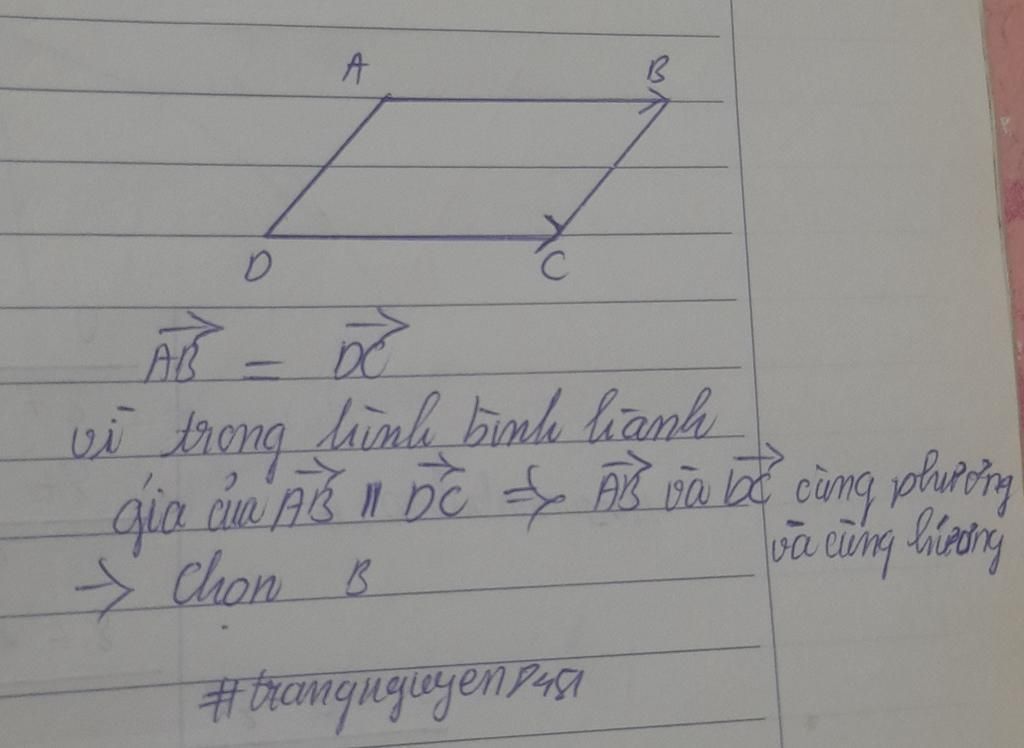 A B
D C
AB = DC
vì trong hình bình hành
giá của AB // DC => AB và DC cùng phương
và cùng hướng
-> Chọn B
#trangnguyen8451